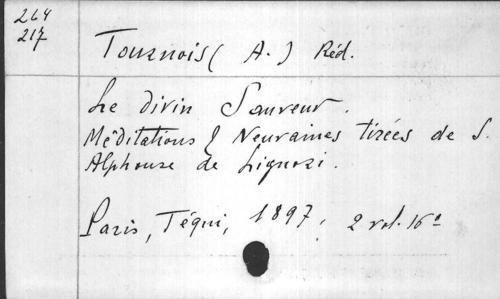 264
217
Tournois (A.) Réd.
Le divin Sauveur.
Méditations & Neuvaines tirées de S.
Alphonse de Liguori.
Paris, Téqui, 1897, 2 vol. 16°